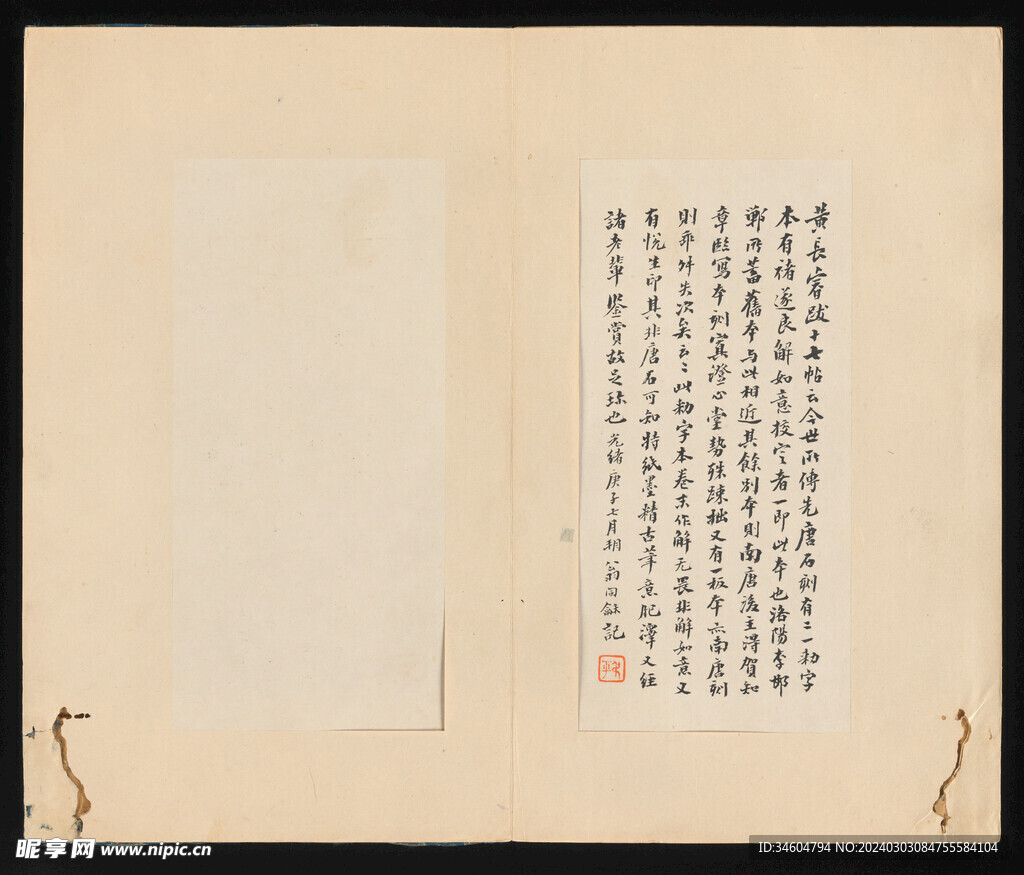 黃長睿跋十七帖云今世所傳先唐石刻有二一勅字
本有褚遂良解如意校定者一即此本也洛陽李邯
鄲所蓄舊本与此相近其餘別本則南唐後主得賀知
章臨寫本刻寘澄心堂勢殊疎拙又有一板本亦南唐刻
則乖舛失次矣云〻此勅字本卷末作解无畏非解如意又
有悅生印其非唐石可知特紙墨精古筆意肥澤又經
諸老輩鑒賞故足珍也 光緒庚子七月朔 翁同龢記
昵享网 www.nipic.cn
ID:34604794 NO:20240303084755584104